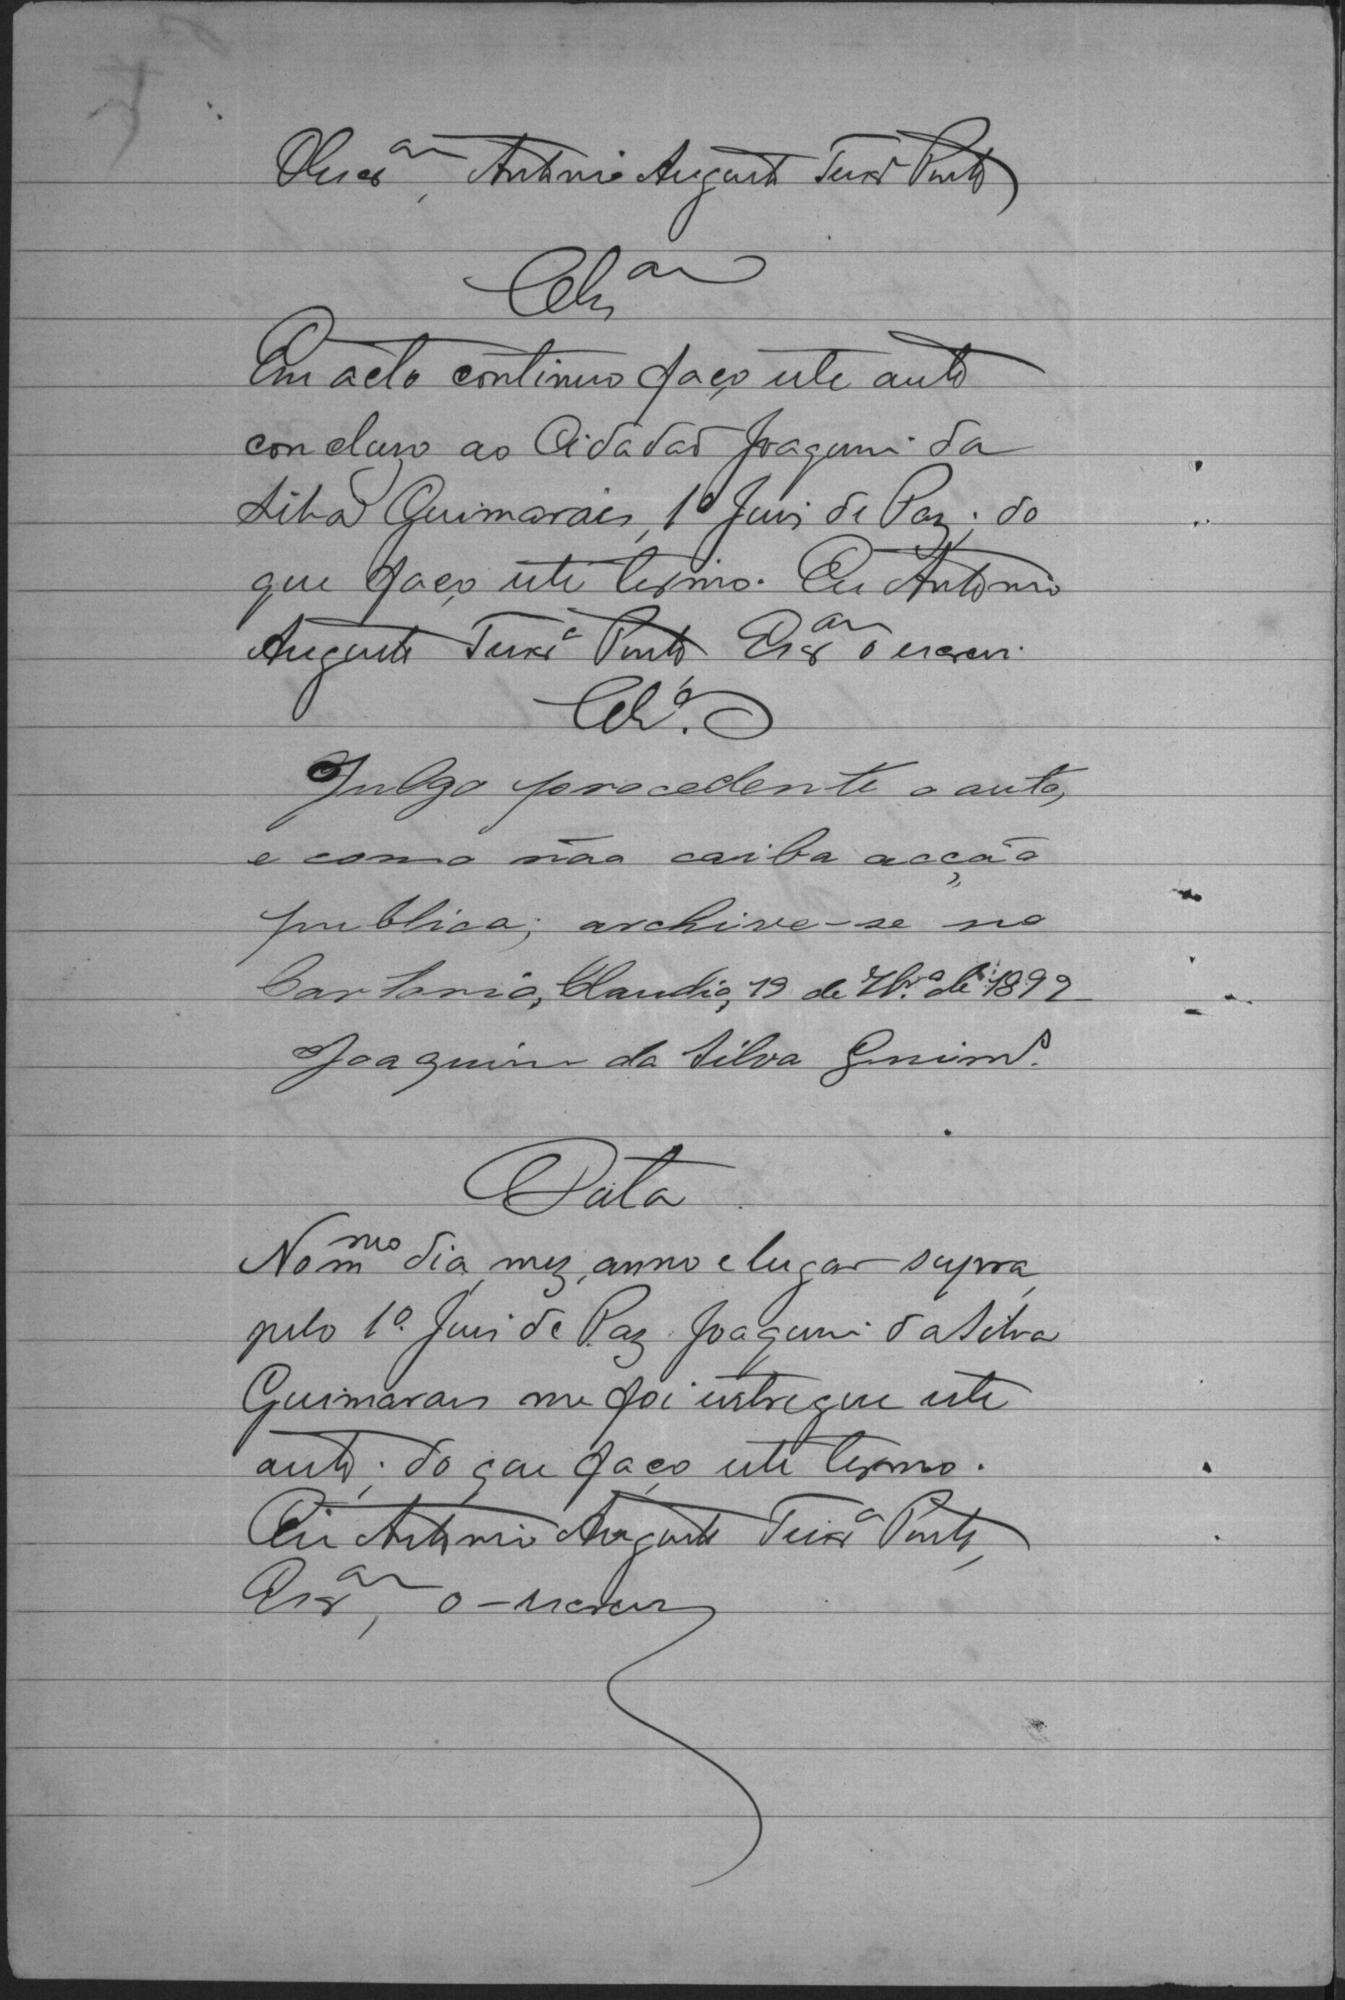 Antonio Augusto Teixrª Pinto
Clsam
Em acto continuo faço este auto
concluzo ao Cidadaõ Joaquim da
Silva Guimarães, 1º Juis de Paz; do
que faço este termo. Eu Antonio
Augusto Teixrª Pinto Escram o escrevi.
Clsº.
Julgo procedente o auto,
e como não caiba acção
publica; archive-se no
Cartorio, Claudio, 19 de 7brº de 1892
Joaquim da Silva Guims.
Data
No mmo dia, mez, anno e lugar supra,
pelo 1º Juis de Paz Joaquim da Silva
Guimarais me foi entregue este
auto; do que faço este termo.
Eu Antonio Augusto Teixrª Pinto,
Escram, o-escrevi